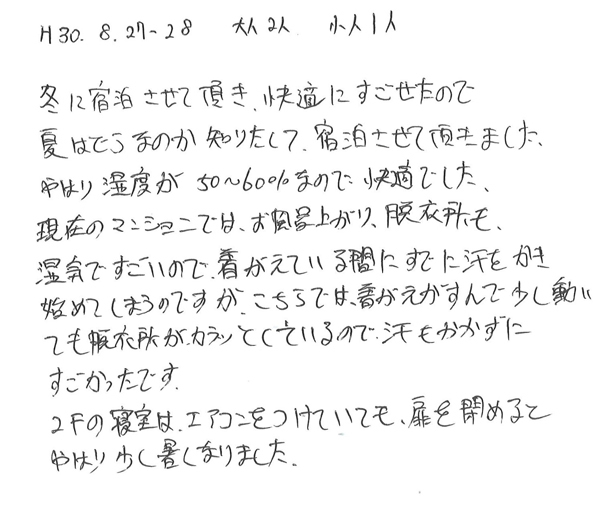 H30. 8. 27~28 大人2人 小人1人
冬に宿泊させて頂き、快適にすごせたので
夏はどうなのか知りたくて、宿泊させて頂きました、
やはり湿度が50~60%なので快適でした、
現在のマンションでは、お風呂上がり、脱衣所も、
湿気ですごいので、着がえている間にすでに汗をかき
始めてしまうのですが、こちらでは、着がえがすんで少し動い
ても脱衣所がカラッとしているので汗もかかずに
すごかったです.
2Fの寝室は、エアコンをつけていても、扉を閉めると
やはり少し暑くなりました、